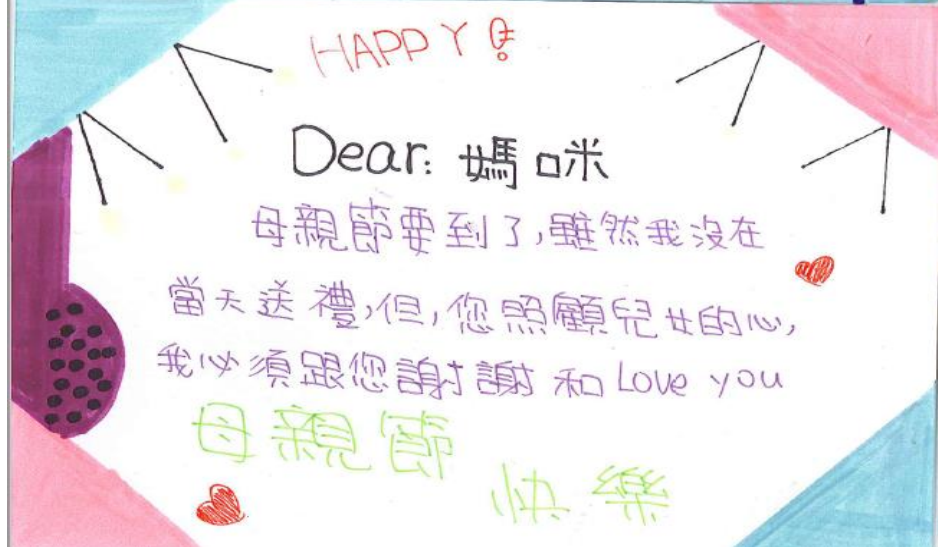 HAPPY!
Dear: 媽咪
母親節要到了,雖然我沒在
當天送禮,但,您照顧兒女的心,
我必須跟您謝謝 和 Love you
母親節
快樂